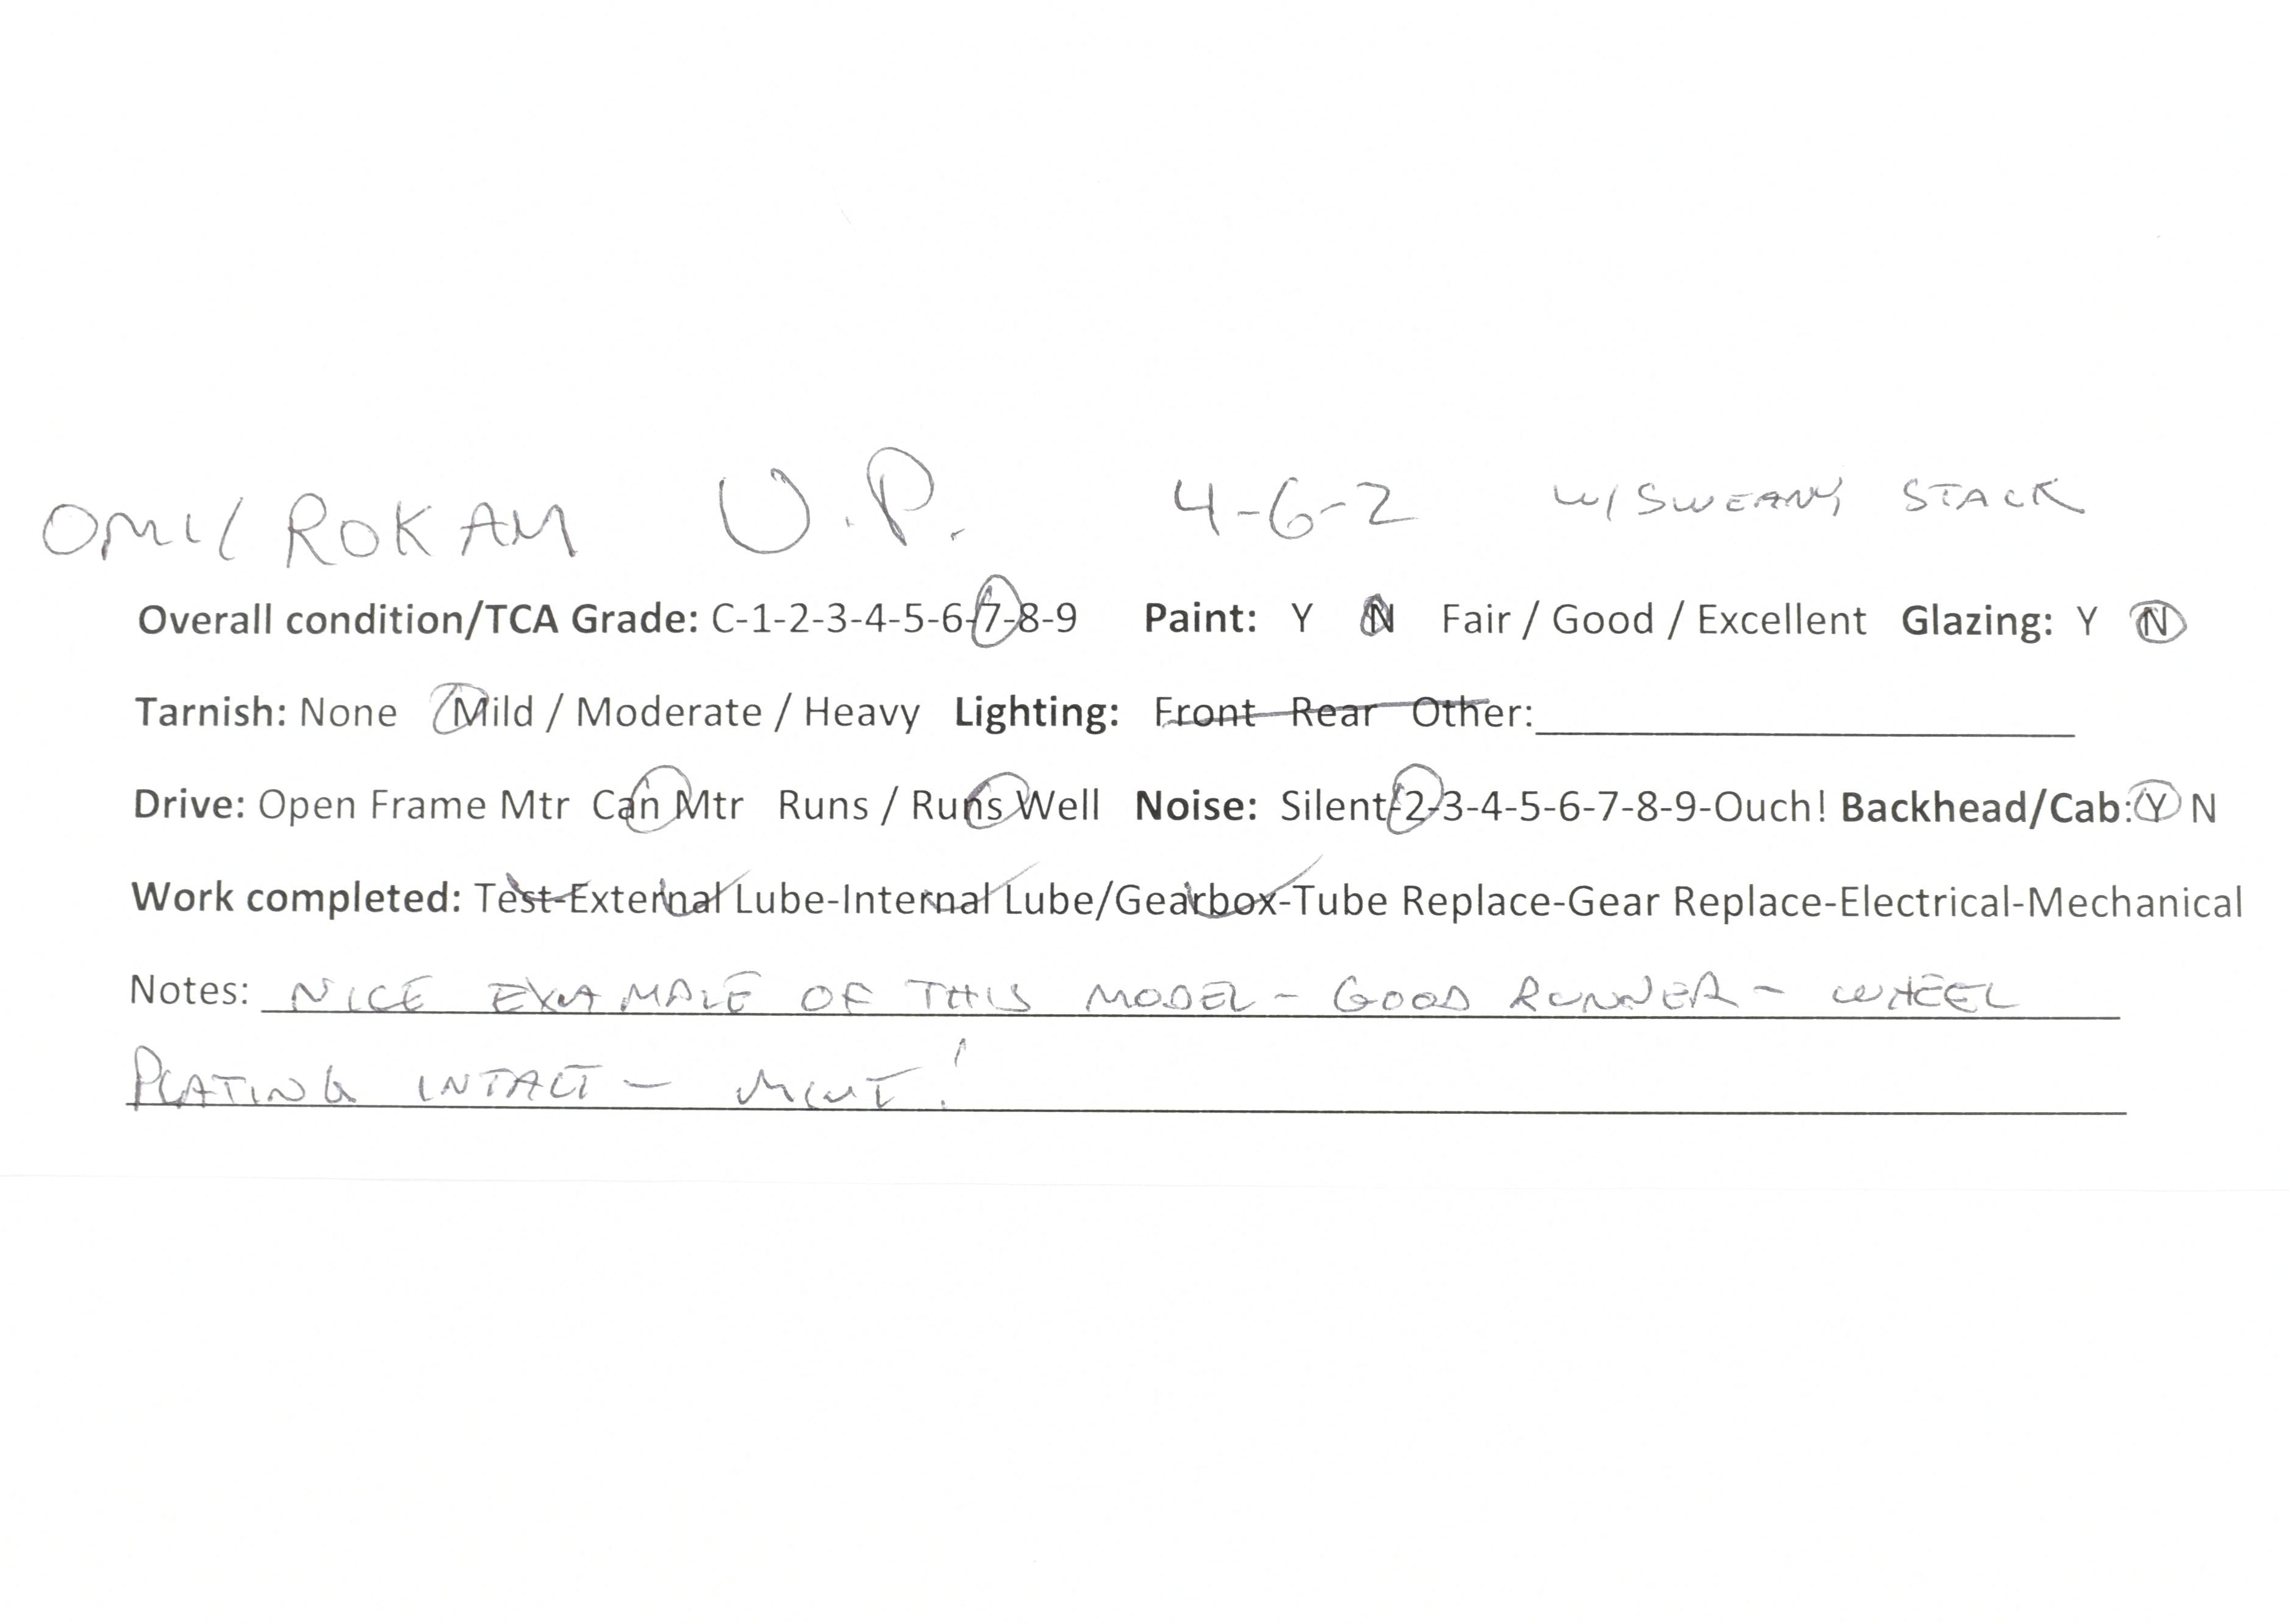 OMI/ ROKAM U.P. 4-6-2 W/ SWEANY STACK
Overall condition/TCA Grade: C-1-2-3-4-5-6-7-8-9 Paint: Y N Fair / Good / Excellent Glazing: Y N
Tarnish: None Mild / Moderate / Heavy Lighting: Front Rear Other:
Drive: Open Frame Mtr Can Mtr Runs / Runs Well Noise: Silent-2-3-4-5-6-7-8-9-Ouch! Backhead/Cab: Y N
Work completed: Test-External Lube-Internal Lube/Gearbox-Tube Replace-Gear Replace-Electrical-Mechanical
Notes: NICE EXAMPLE OF THIS MODEL - GOOD RUNNER - WHEEL
PLATING INTACT - MINT!